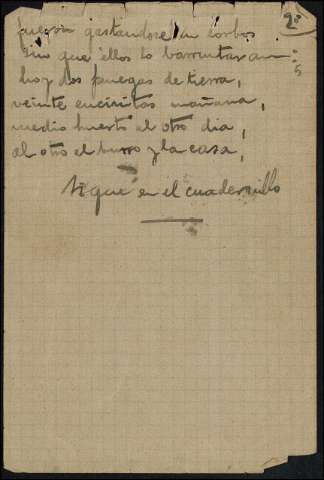 2º
fueron gastandosela en lorbos
sin que ellos lo barruntaran:
hoy dos fuegas de tierra,
veinte encinitas mañana,
medio huerto al otro dia,
al otro el burro y la casa,
Sigue en el cuadernillo